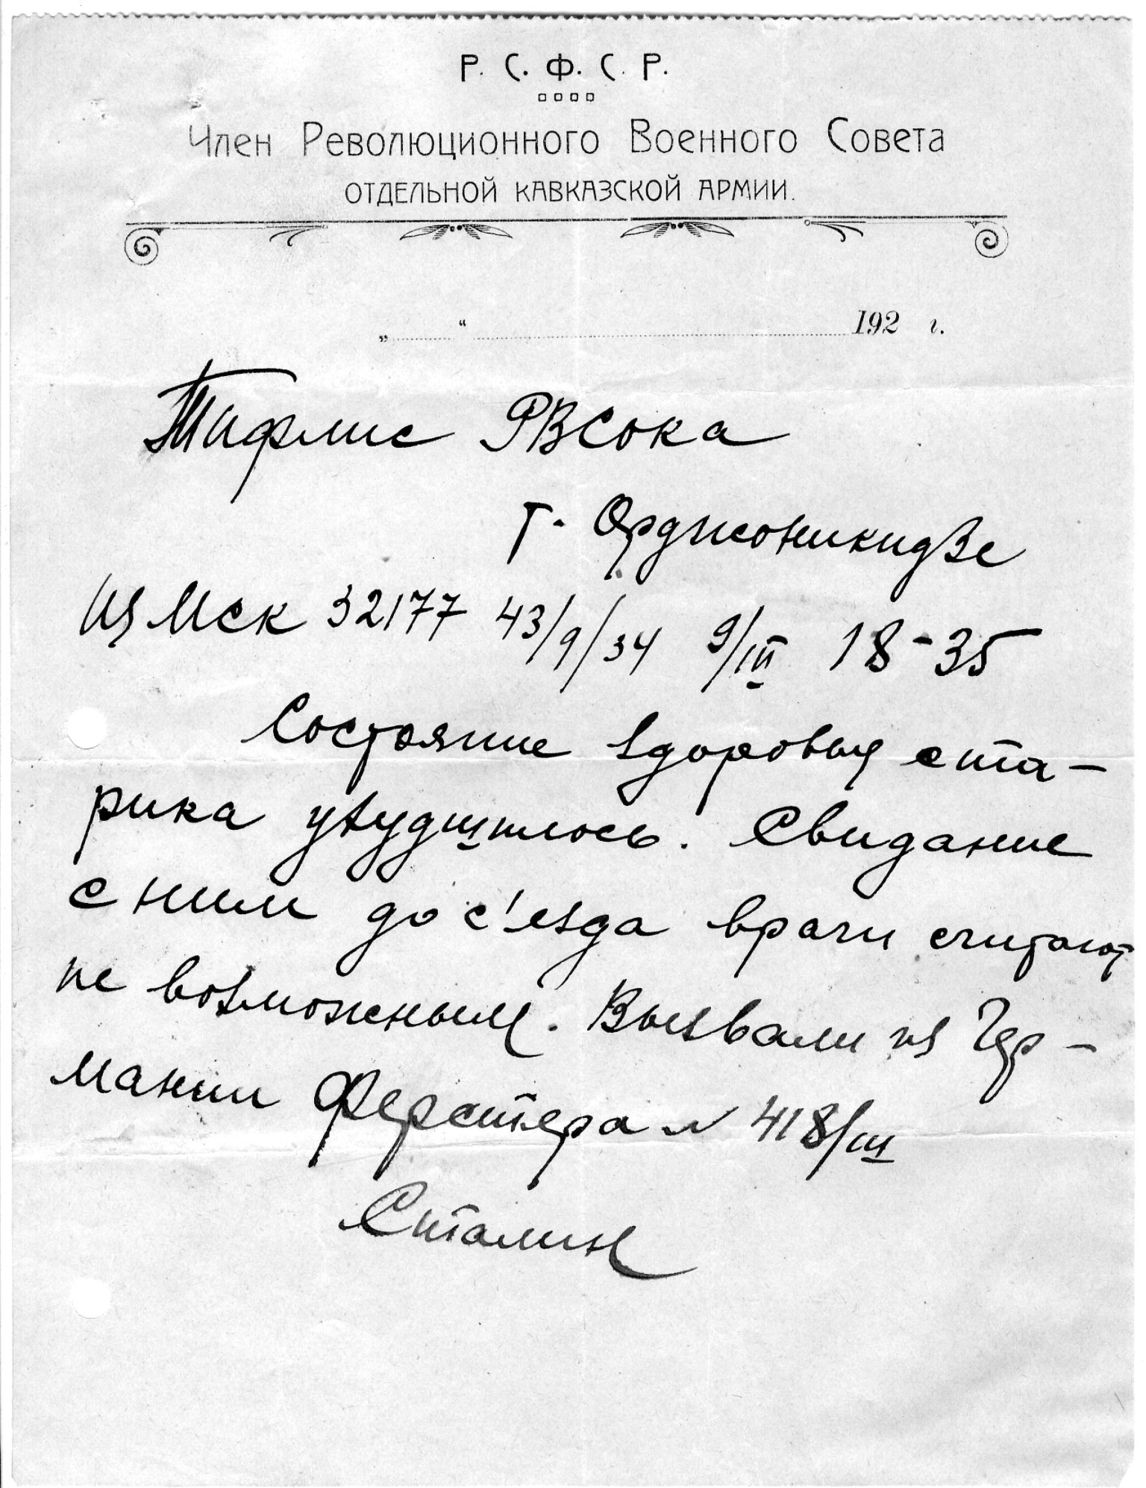 Р. С. Ф. С. Р.
Член Революционного Военного Совета
ОТДЕЛЬНОЙ КАВКАЗСКОЙ АРМИИ.
„ “ 192 г.
Тифлис РВСока
т. Орджоникидзе
Из Мск 32177 43/9/34 9/III 18-35
Состояние здоровья ста-
рика ухудшилось. Свидание
с ним до с'езда врачи считают
не возможным. Вызвали из Гер-
мании Ферстера N 418/III
Сталин